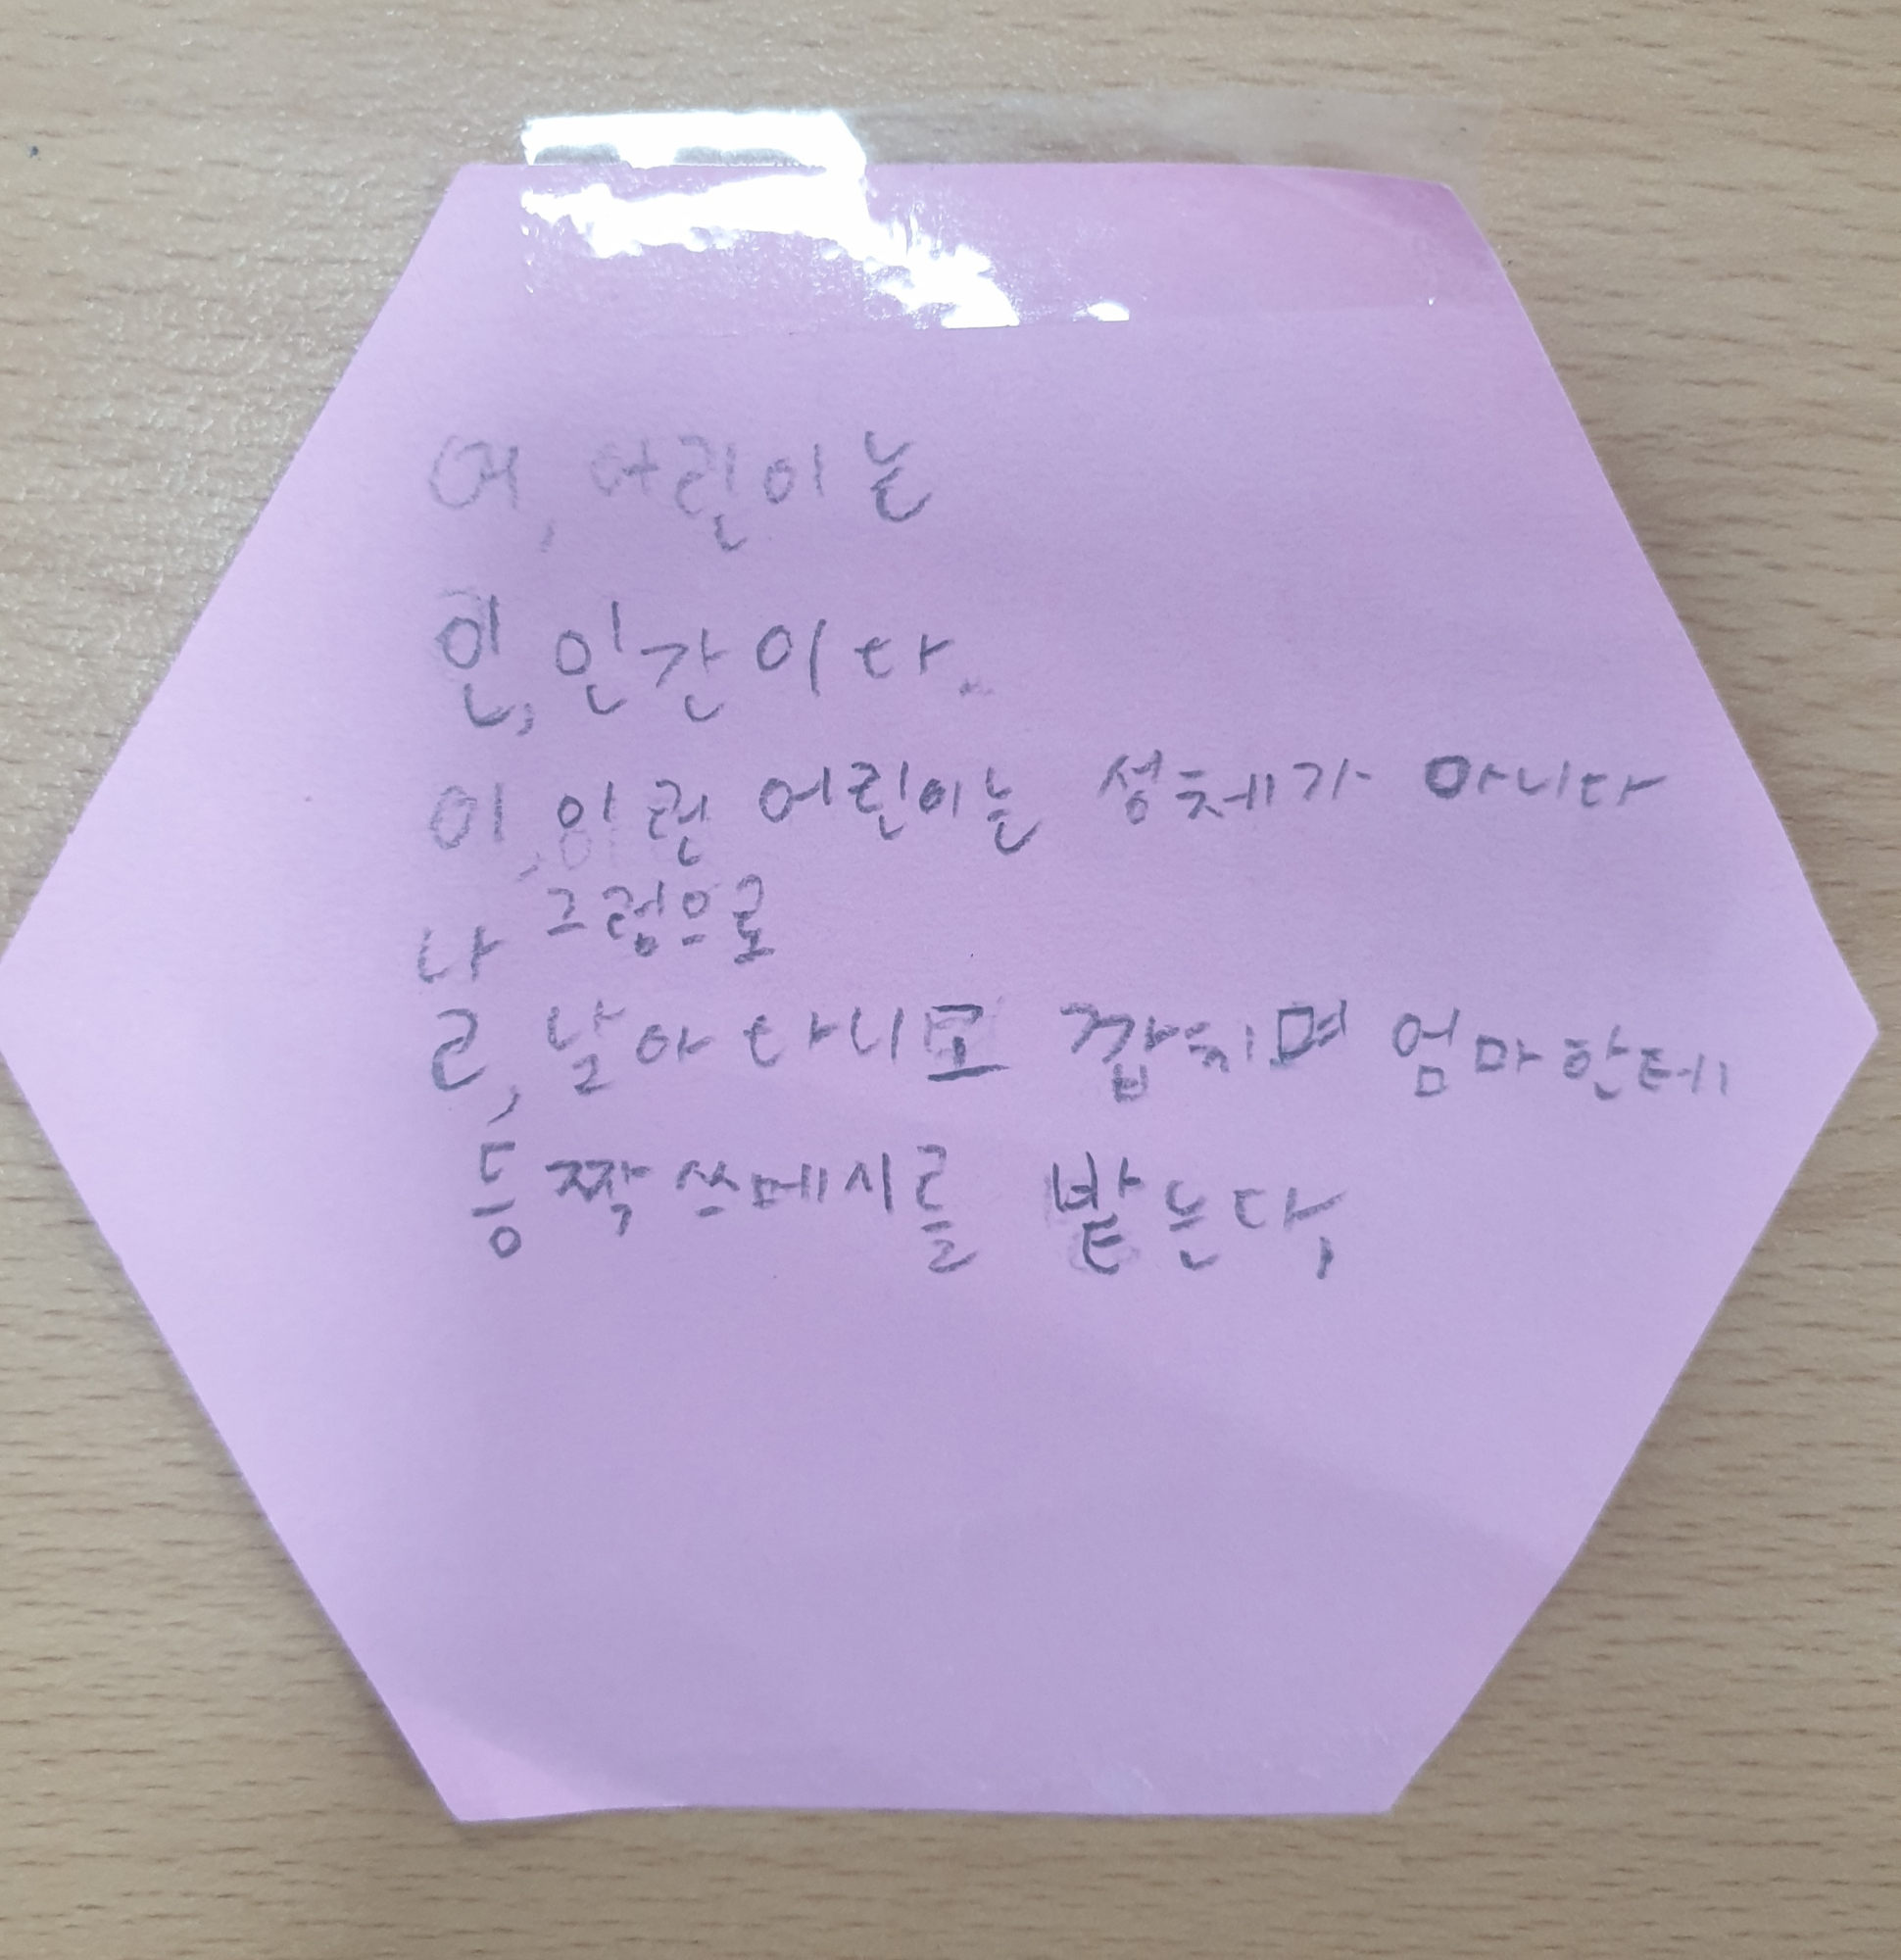 어, 어린이는
인, 인간이다.
이, 이런 어린이는 성체가 아니다
그럼으로
나
르, 날아다니고 깝치며 엄마한테
등짝 쓰메시를 밭는다,